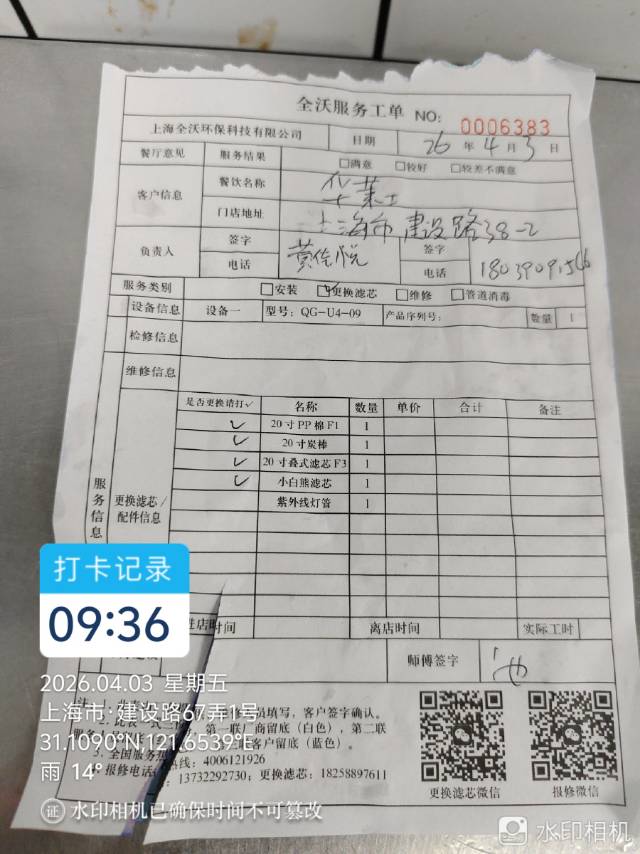 全沃服务工单 NO: 0006383
上海全沃环保科技有限公司 日期 26 年 4 月 3 日
餐厅意见 服务结果 □满意 □较好 □较差不满意
客户信息 餐饮名称 华莱士
门店地址 上海市建设路38-2
负责人 签字 黄佳悦 签字
电话 电话
服务类别 □安装 ☑更换滤芯 □维修 □管道消毒
设备信息 设备一 型号: QG-U4-09 产品序列号: 数量 1
检修信息
维修信息
服务信息
更换滤芯/配件信息
是否更换请打✓ 名称 数量 单价 合计 备注
✓ 20寸PP棉F1 1
✓ 20寸炭棒 1
✓ 20寸叠式滤芯F3 1
✓ 小白熊滤芯 1
紫外线灯管 1
进店时间 离店时间 实际工时
师傅签字
员填写，客户签字确认。
第一联厂商留底（白色），第二联
客户留底（蓝色）。
3、全国服务热线：4006121926
报修电话：13732292730；更换滤芯：18258897611
更换滤芯微信 报修微信
打卡记录
09:36
2026.04.03 星期五
上海市·建设路67弄1号
31.1090°N,121.6539°E
雨 14°
证 水印相机已确保时间不可篡改
水印相机